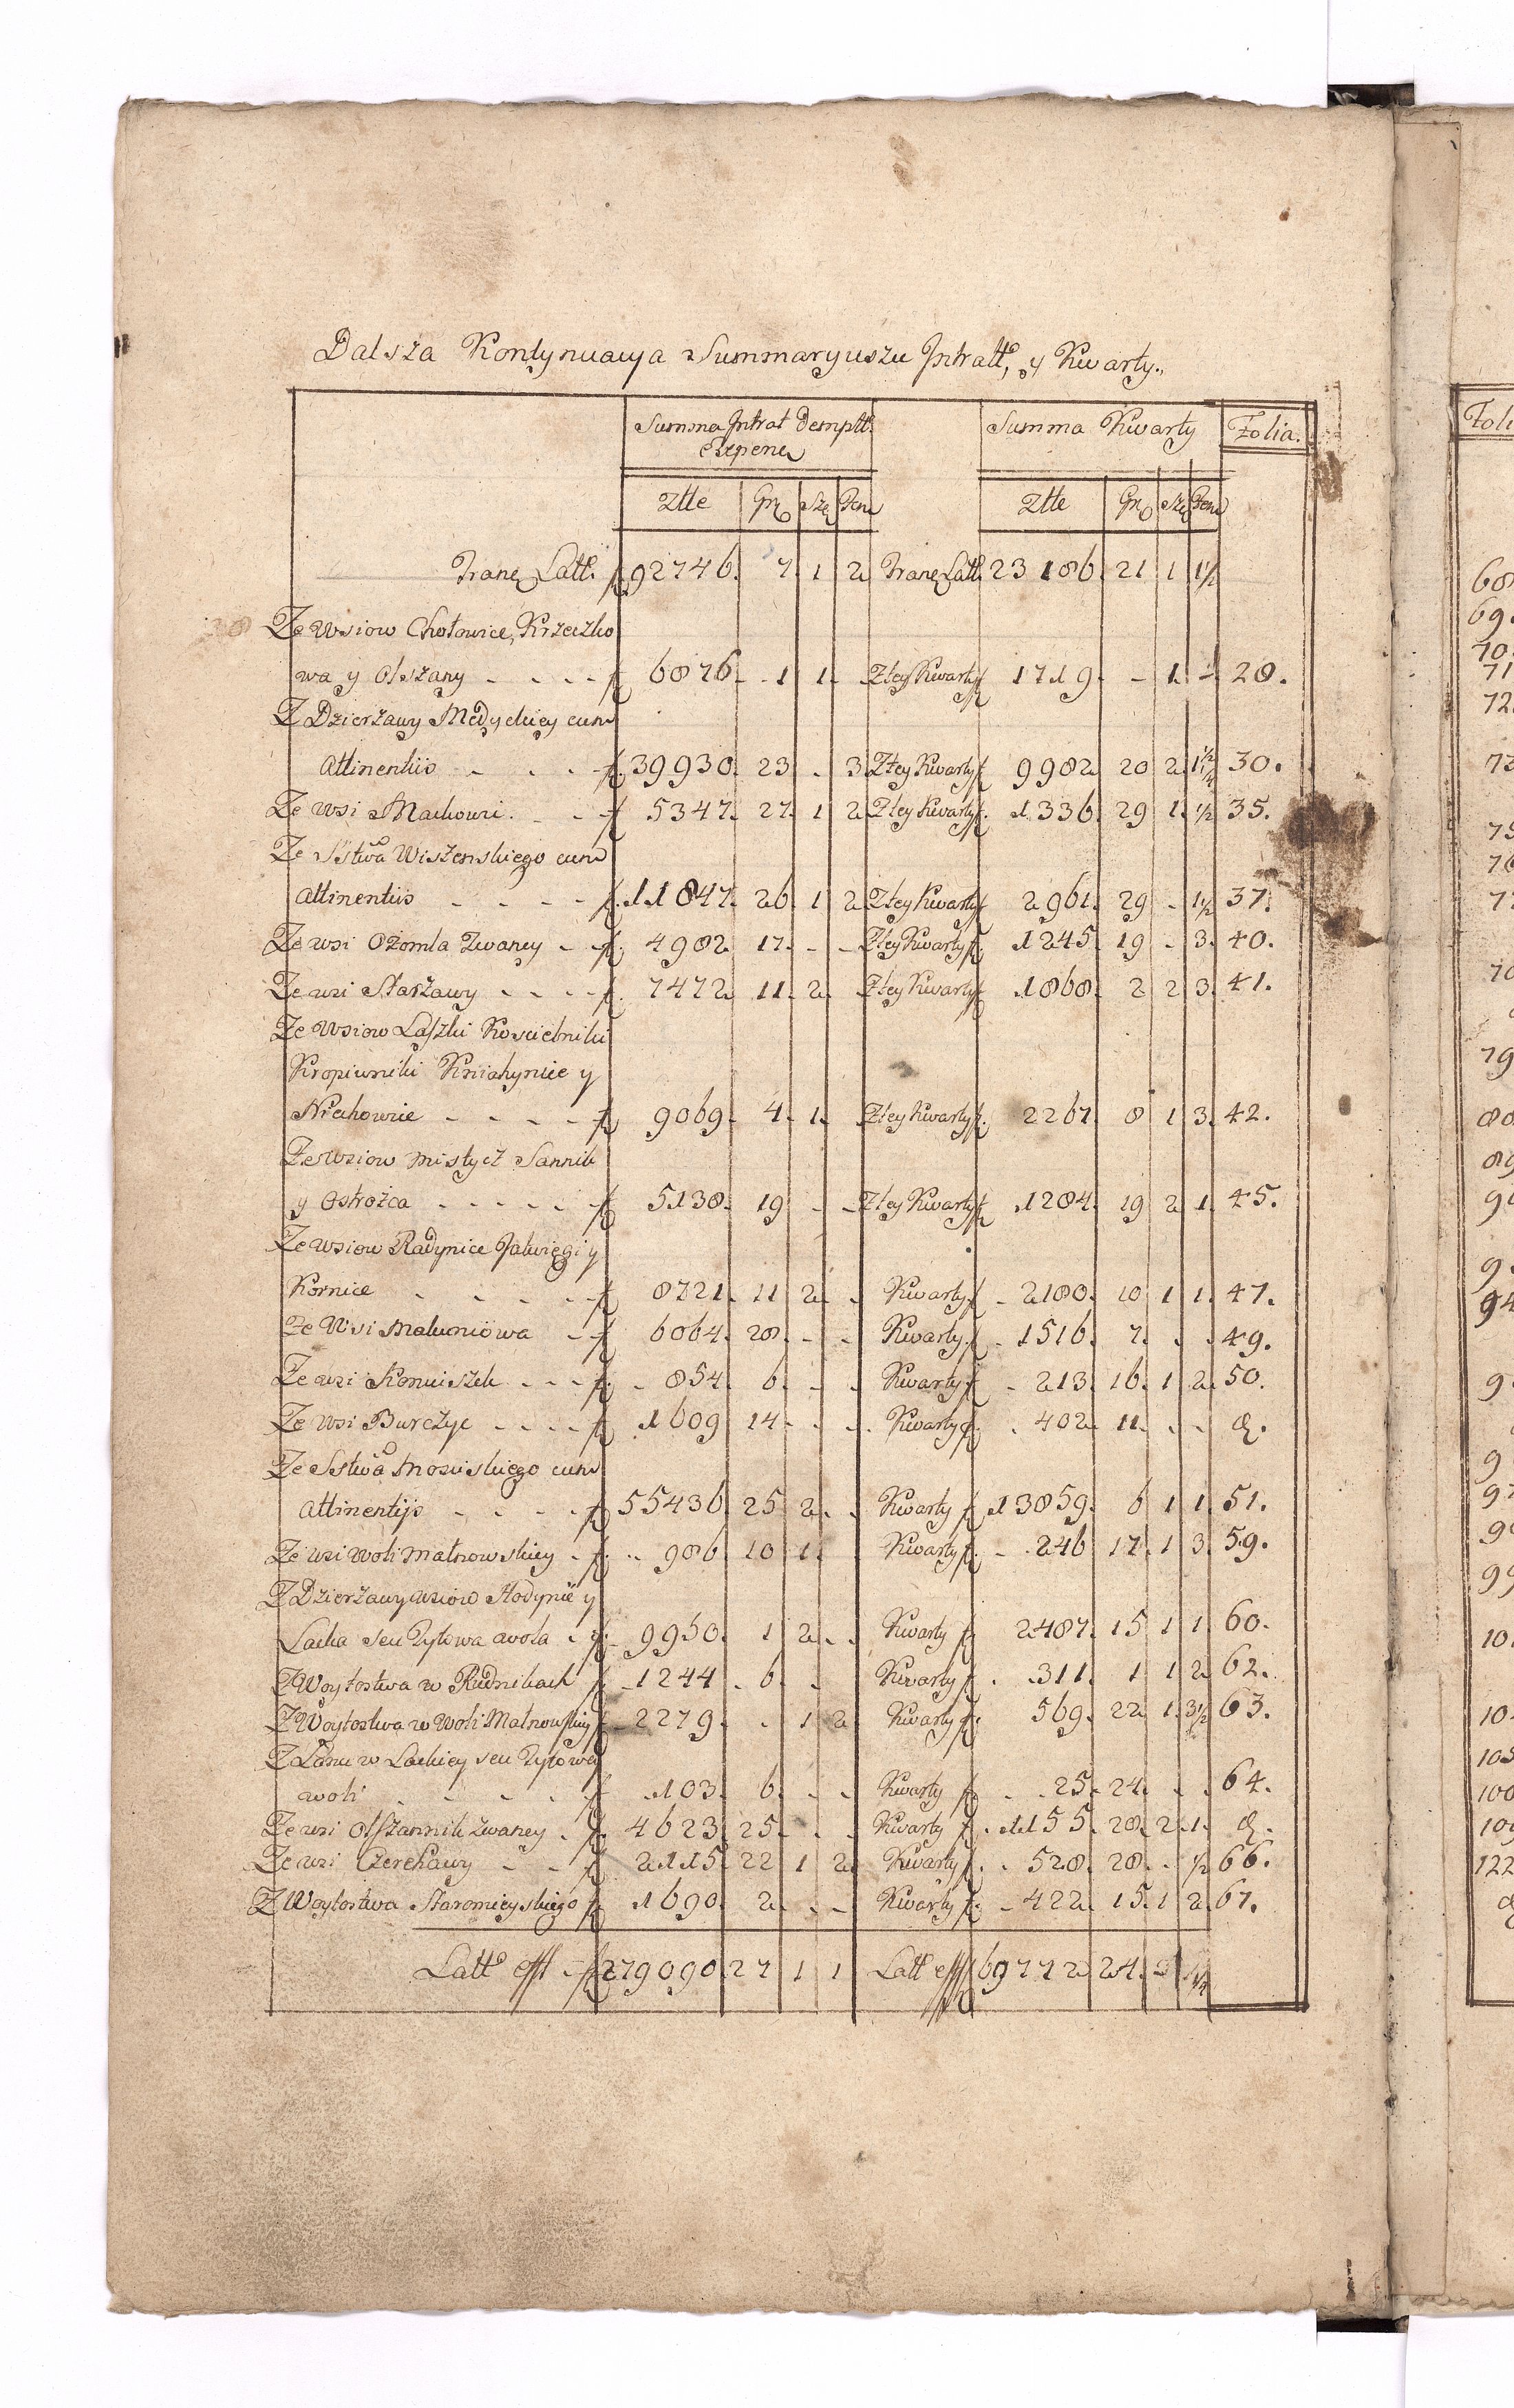 Dalsza Kontynuacya Summaryuszu Intratt, y Kwarty.
Summa Intrat Demptt. Summa Kwarty Folia.
Expens
Ztte Gr Sze Den Ztte Gr Sze Den
Trans Latt. f 92746. 7. 1 2 Trans Latt. 23186. 21 1 1½
Ze Wsiow Chotowice, Krzeczko
wa y Olszany - - - - f 6876. 1 1. Ztey Kwarty f 1719. - 1. - 28.
Z Dzierzawy Medyckiey cum
Attinentiis - - - - f 39930. 23 . 3 Ztey Kwarty f 9982 20 2 1½ ¼ 30.
Ze Wsi Machowi. - - f 5347. 27. 1 2 Ztey Kwarty f. 1336 29 1. ½ 35.
Ze Sstwa Wiszenskiego cum
Attinentiis - - - - f. 11847. 26 1 2 Ztey Kwarty f 2961. 29 - 1½ 37.
Ze wsi Ożomla Zwaney - - f. 4982 17. - - Ztey Kwarty f. 1245. 19 - 3. 40.
Ze wsi Starzawy - - - - f. 7472 11. 2. Ztey Kwarty f 1868. 2 2 3. 41.
Ze Wsiow Laszki Koscielniki
Kropiwniki Kniahynice y
Nichowice - - - - f 9069. 4. 1. Ztey Kwarty f. 2267. 8 1 3. 42.
Ze Wsiow Mistycz Sannik
y Ostrożca - - - - - f 5138. 19 - - Ztey Kwarty f 1284. 19 2 1. 45.
Ze Wsiow Radynice Jatwięgi y
Kornice - - - - - f 8721. 11 2. . Kwarty f - 2180. 10 1 1. 47.
Ze Wsi Malunowa - - f 6064. 28. - - Kwarty. f - 1516. 7. . . 49.
Ze wsi Koniuszek - - - f. - 854. 6. - - Kwarty f - 213. 16. 1 2. 50.
Ze Wsi Burczyc - - - - f 1609 14 - . . Kwarty f . 402. 11. . - &.
Ze Sstwa Mosciskiego cum
Attinentijs - - - - f 55436 25 2. . Kwarty f 13859. 6 1 1. 51.
Ze wsi Woli Matnowskiey - f. - 986 10 1. Kwarty f. - 246 17. 1 3. 59.
Z Dzierzawy wsiow Hodynie y
Lacka seu Zytowa wola - f. 9950. 1 2. . Kwarty f. 2487. 15 1 1. 60.
Z Woytostwa w Rudnikach f - 1244 . 6. . Kwarty f . 311. 1 1 2 62.
Z Woytostwa w Woli Matnowskiey f 2279. . 1 2. Kwarty f. 569. 22 1. 3½ 63.
Z Lanu w Lackiey seu Zytowey
woli - - - - - f .103. 6. . . Kwarty f . . 25. 24. . . 64.
Ze wsi Olszannik zwaney . f. 4623. 25. . . Kwarty f. 1155. 28. 2. 1. &.
Ze wsi Czerchawy - - f 2115. 22 1 2. Kwarty f. . 528. 28. . ½ 66.
Z Woytostwa Staromieyskiego f. 1690. 2. . - Kwarty f. - 422. 15. 1 2. 67.
Latt eff - f 279090. 27 1 1 Latt eff f 69772 24.
Foli
68
69.
70.
71
72.
79
80